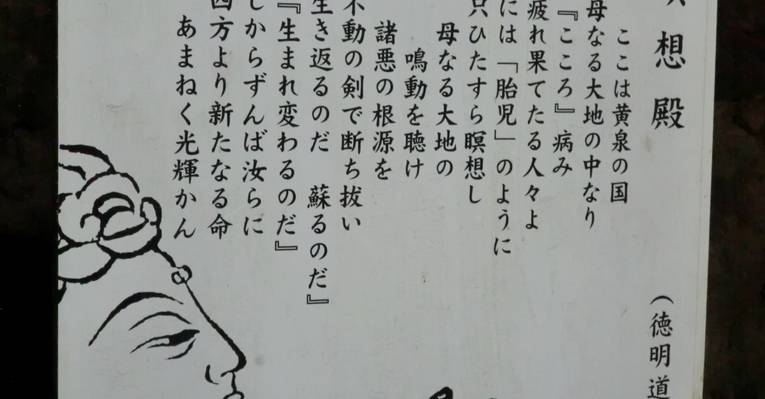 想殿
（徳明道
ここは黄泉の国
母なる大地の中なり
『こころ』病み
疲れ果てたる人々よ
には「胎児」のように
只ひたすら瞑想し
母なる大地の
鳴動を聴け
諸悪の根源を
不動の剣で断ち抜い
生き返るのだ　蘇るのだ』
『生まれ変わるのだ』
しからずんば汝らに
四方より新たなる命
あまねく光輝かん